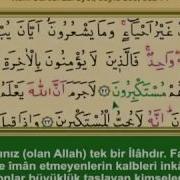 غَيْرُ اَحْيَٓاءٍ وَمَا يَشْعُرُونَ اَيَّانَ يُبْ
وَاحِدٌ فَالَّذٖينَ لَا يُؤْمِنُونَ بِالْاٰخِرَةِ
مُسْتَكْبِرُونَ لَا جَرَمَ اَنَّ اللّٰهَ يَعْ
اِنَّهُ لَا يُحِبُّ الْمُسْتَكْبِرٖينَ
nız (olan Allah) tek bir İlâhdır. Fa
e îmân etmeyenlerin kalbleri inkâ
onlar büyüklük taslayan kimseler